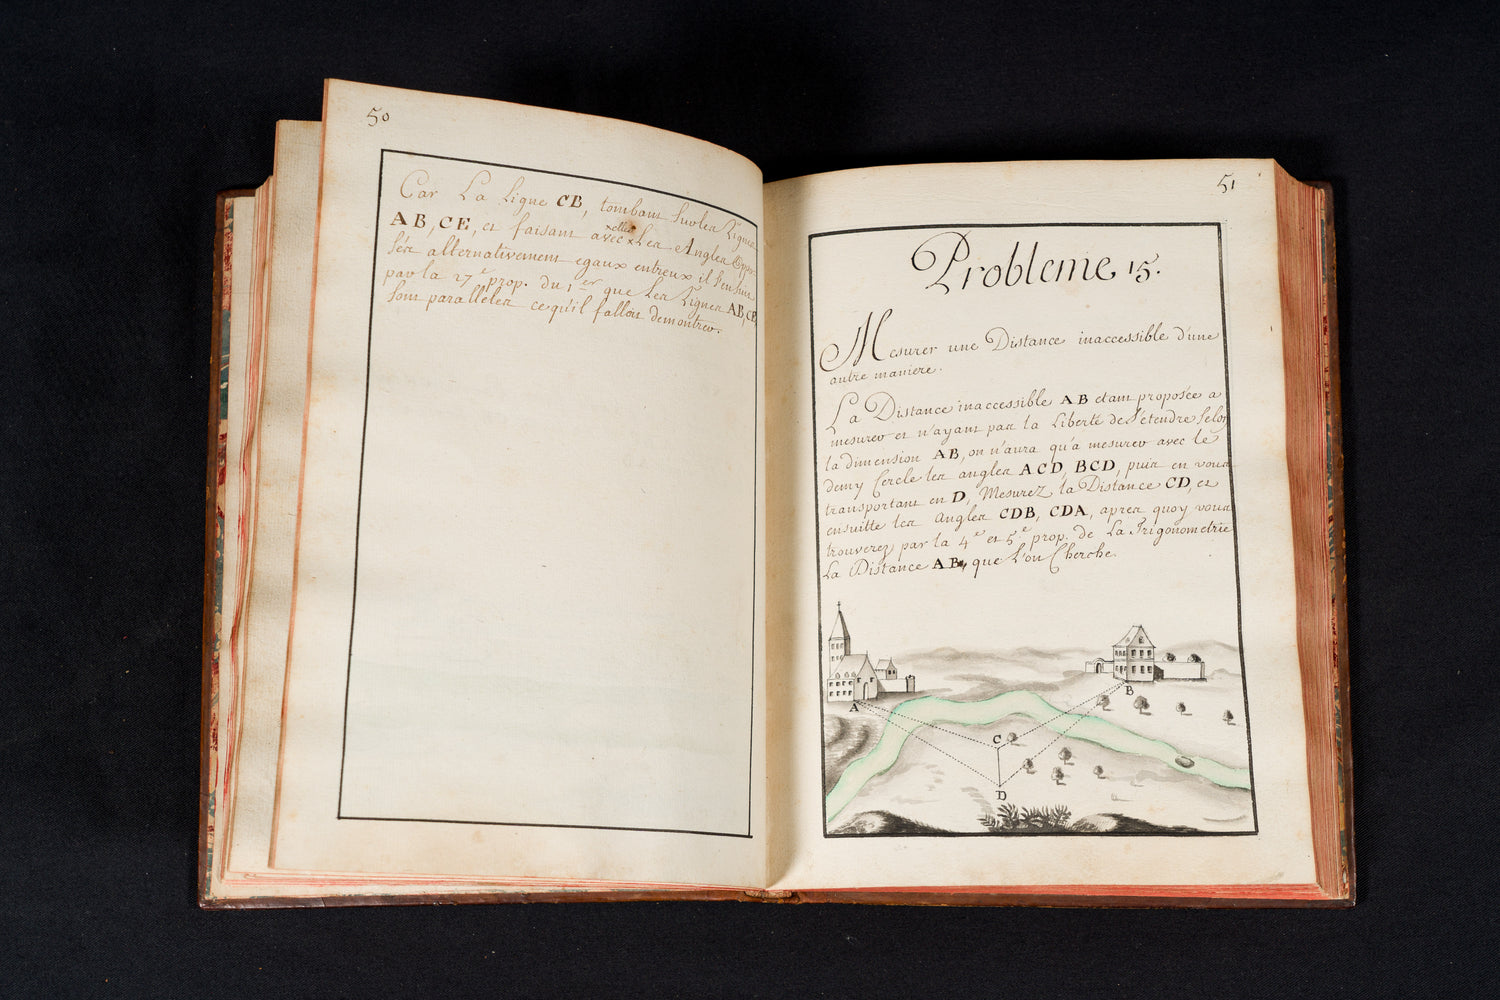 50
Car La Ligne CB, tombant sur les Lignes
AB, CE, et faisant avec elles les Angles Oppo-
sés alternativement egaux entreux il s'ensuit
par la 27e prop. du 1er que Les Lignes AB, CE
sont paralleles ce qu'il falloit demontrer.
51
Probleme 15.
Mesurer une Distance inaccessible d'une
autre maniere.
La Distance inaccessible AB etant proposée a
mesurer et n'ayant pas la Liberté de S'étendre selon
la dimension AB, on n'aura qu'a mesurer avec le
demy Cercle les angles ACD, BCD, puis en vous
transportant en D, Mesurez la Distance CD, et
ensuitte les Angles CDB, CDA, apres quoy vous
trouverez par la 4e et 5e prop. de La Trigonometrie
La Distance AB, que l'on Cherche.
A
B
C
D